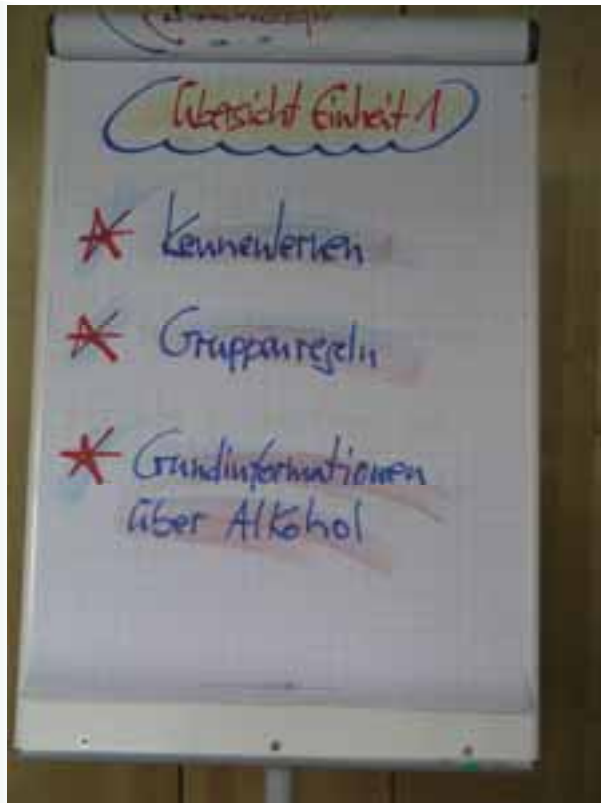 Übersicht Einheit 1
Kennenlernen
Gruppenregeln
Grundinformationen
über Alkohol